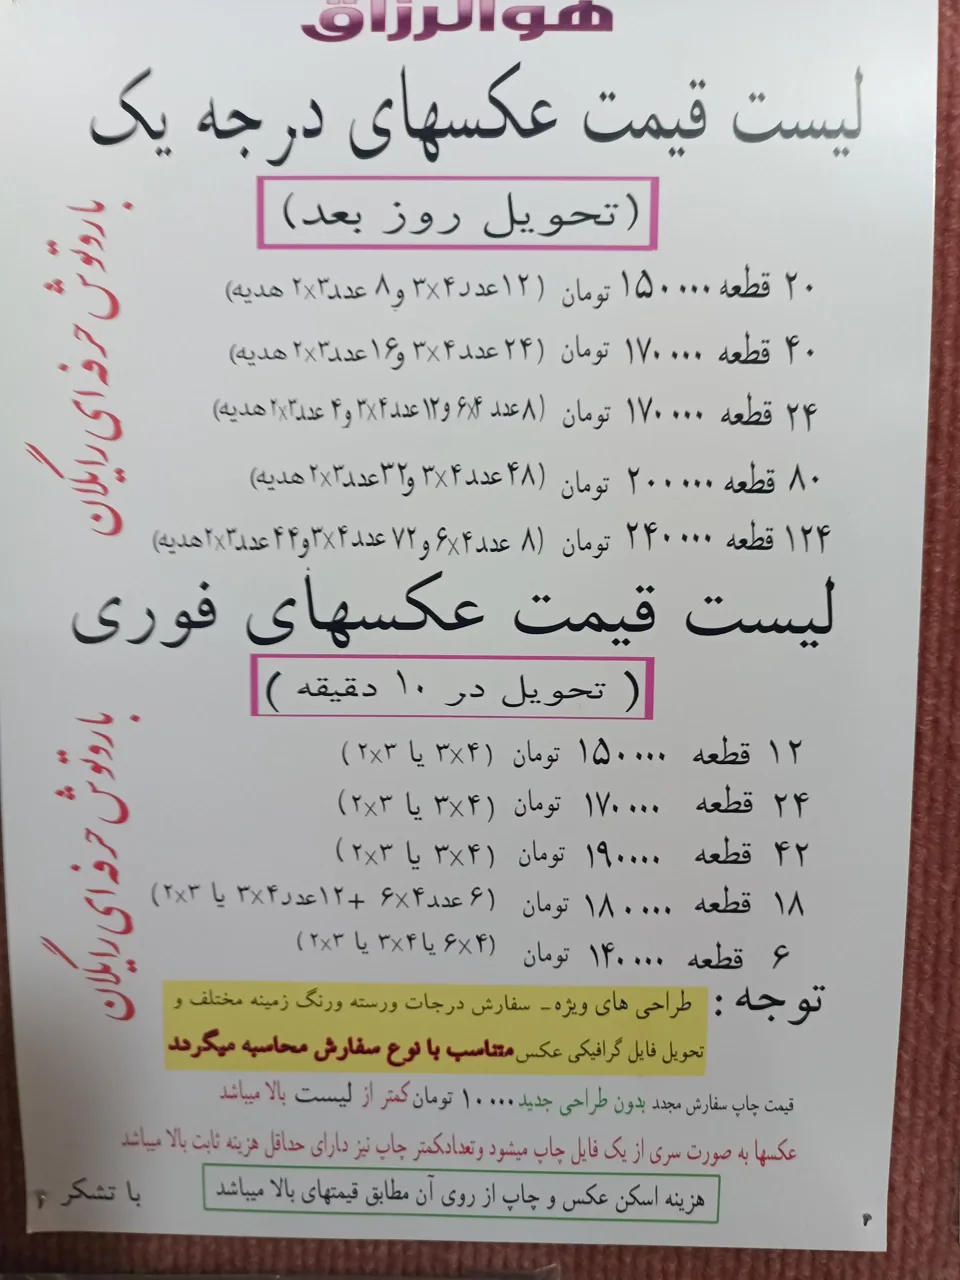 هوالرزاق
لیست قیمت عکسهای درجه یک
(تحویل روز بعد)
۲۰ قطعه ۱۵۰۰۰۰ تومان (۱۲عدد۳x۴ و۸ عدد۲x۳ هدیه)
۴۰ قطعه ۱۷۰۰۰۰ تومان (۲۴ عدد۳x۴ و۱۶عدد۲x۳ هدیه)
۲۴ قطعه ۱۷۰۰۰۰ تومان (۸عدد ۶x۴ و۱۲عدد۳x۴ و۴ عدد۲x۳ هدیه)
۸۰ قطعه ۲۰۰۰۰۰ تومان (۴۸عدد۳x۴ و۳۲عدد۲x۳هدیه)
۱۲۴ قطعه ۲۴۰۰۰۰ تومان (۸ عدد۶x۴ و۷۲ عدد۳x۴و۴۴عدد۲x۳هدیه)
باروتوش حرفه ای رایگان
لیست قیمت عکسهای فوری
( تحویل در ۱۰ دقیقه )
۱۲ قطعه ۱۵۰۰۰۰ تومان (۳x۴ یا ۲x۳)
۲۴ قطعه ۱۷۰۰۰۰ تومان (۳x۴ یا ۲x۳)
۴۲ قطعه ۱۹۰۰۰۰ تومان (۳x۴ یا ۲x۳)
۱۸ قطعه ۱۸۰۰۰۰ تومان (۶عدد۶x۴ +۱۲عدد۳x۴ یا ۲x۳)
۶ قطعه ۱۴۰۰۰۰ تومان (۶x۴ یا۳x۴ یا ۲x۳)
باروتوش حرفه ای رایگان
توجه : طراحی های ویژه- سفارش درجات ورسته ورنگ زمینه مختلف و
تحویل فایل گرافیکی عکس متناسب با نوع سفارش محاسبه میگردد
قیمت چاپ سفارش مجدد بدون طراحی جدید ۱۰۰۰۰ تومان کمتر از لیست بالا میباشد
عکسها به صورت سری از یک فایل چاپ میشود وتعدادکمتر چاپ نیز دارای حداقل هزینه ثابت بالا میباشد
هزینه اسکن عکس و چاپ از روی آن مطابق قیمتهای بالا میباشد
با تشکر